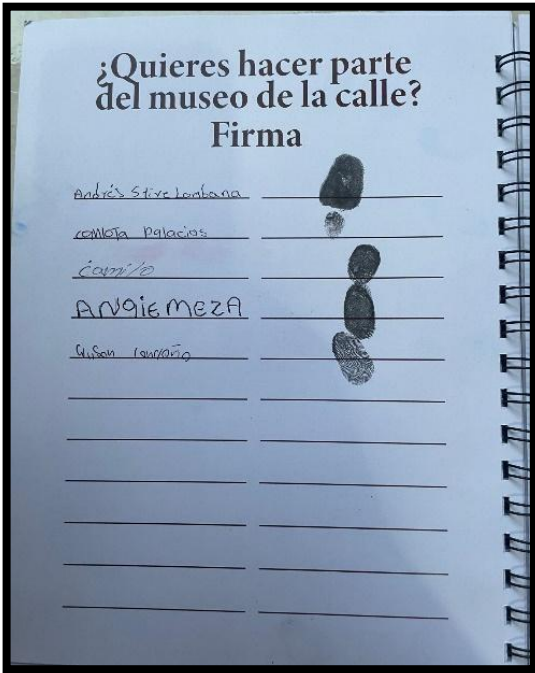 ¿Quieres hacer parte
del museo de la calle?
Firma
Andrés Stive Lombana
Palacios
Camilo
ANGIE MEZA